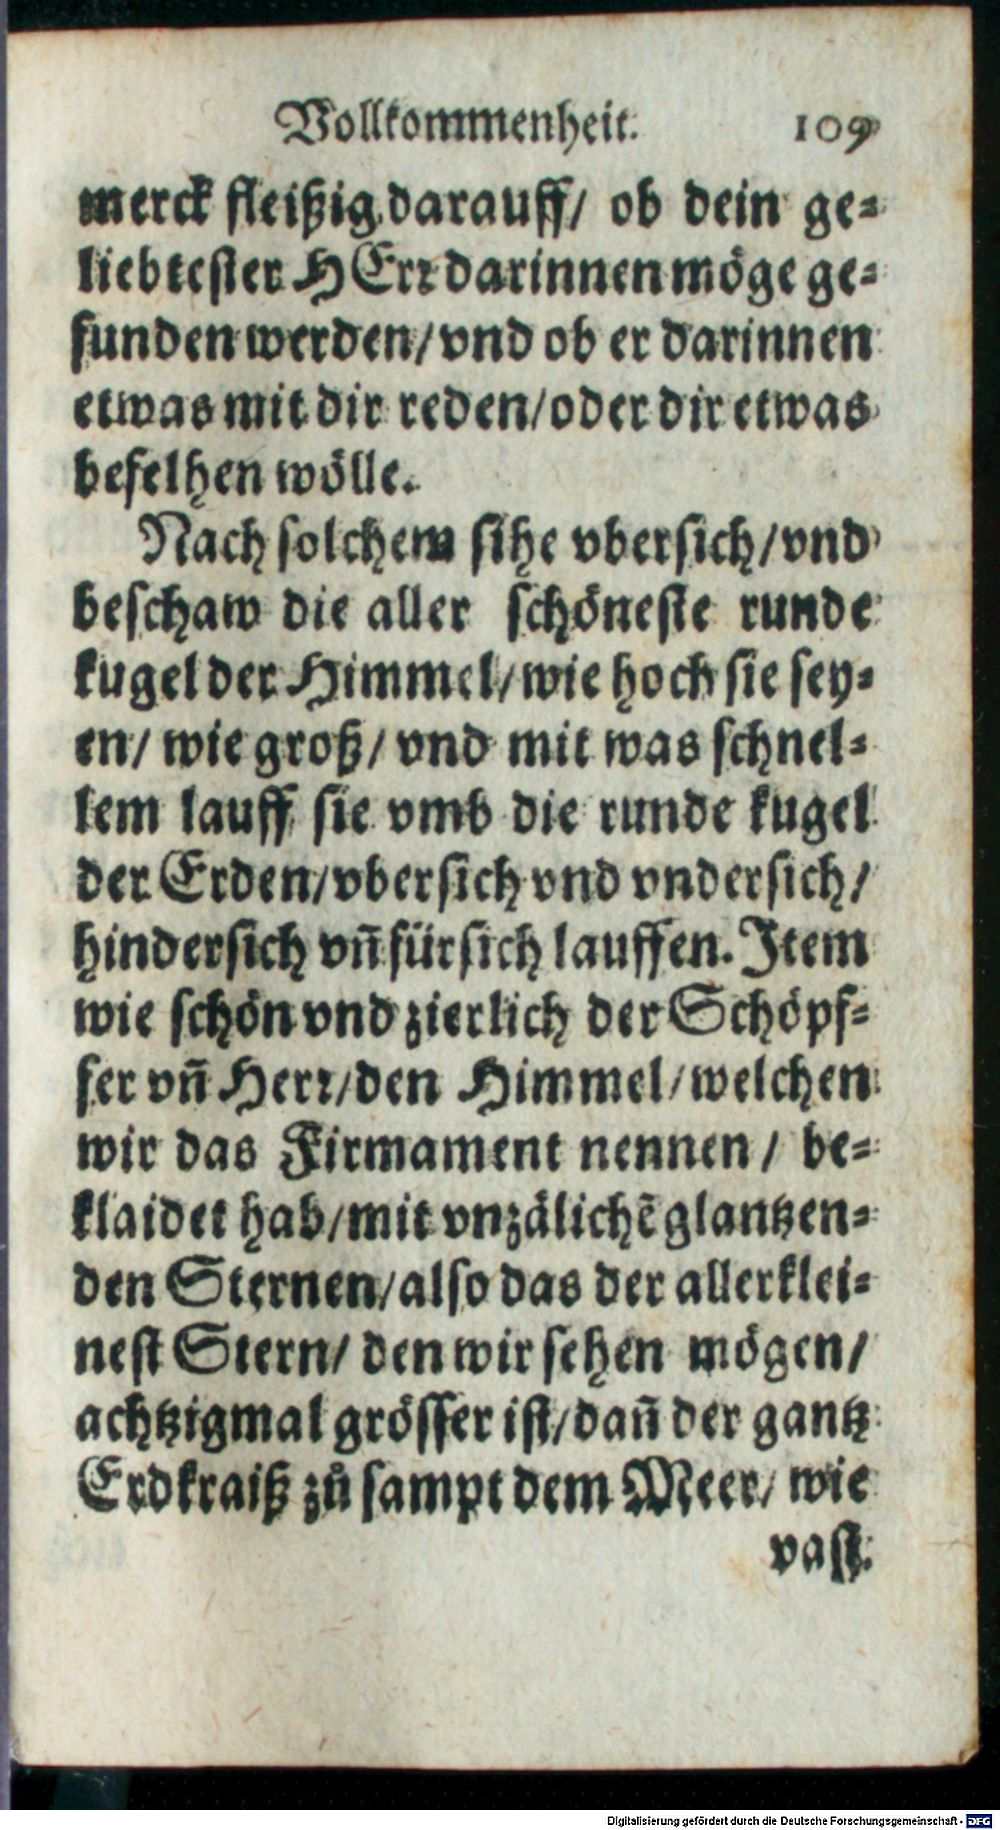 Vollkommenheit. 109
merck fleißig darauff/ ob dein ge-
liebtester HErr darinnen möge ge-
funden werden/ vnd ob er darinnen
etwas mit dir reden/ oder dir etwas
befelhen wölle.
Nach solchem sihe vbersich/ vnd
beschaw die aller schöneste runde
kugel der Himmel/ wie hoch sie sey-
en/ wie groß/ vnd mit was schnel-
lem lauff sie vmb die runde kugel
der Erden/ vbersich vnd vndersich/
hindersich vñ fürsich lauffen. Item
wie schön vnd zierlich der Schöpf-
fer vñ Herr/ den Himmel/ welchen
wir das Firmament nennen/ be-
klaidet hab/ mit vnzälichẽ glantzen-
den Sternen/ also das der allerklei-
nest Stern/ den wir sehen mögen/
achtzigmal grösser ist/ dañ der gantz
Erdkraiß zů sampt dem Meer/ wie
vast
Digitalisierung gefördert durch die Deutsche Forschungsgemeinschaft - DFG